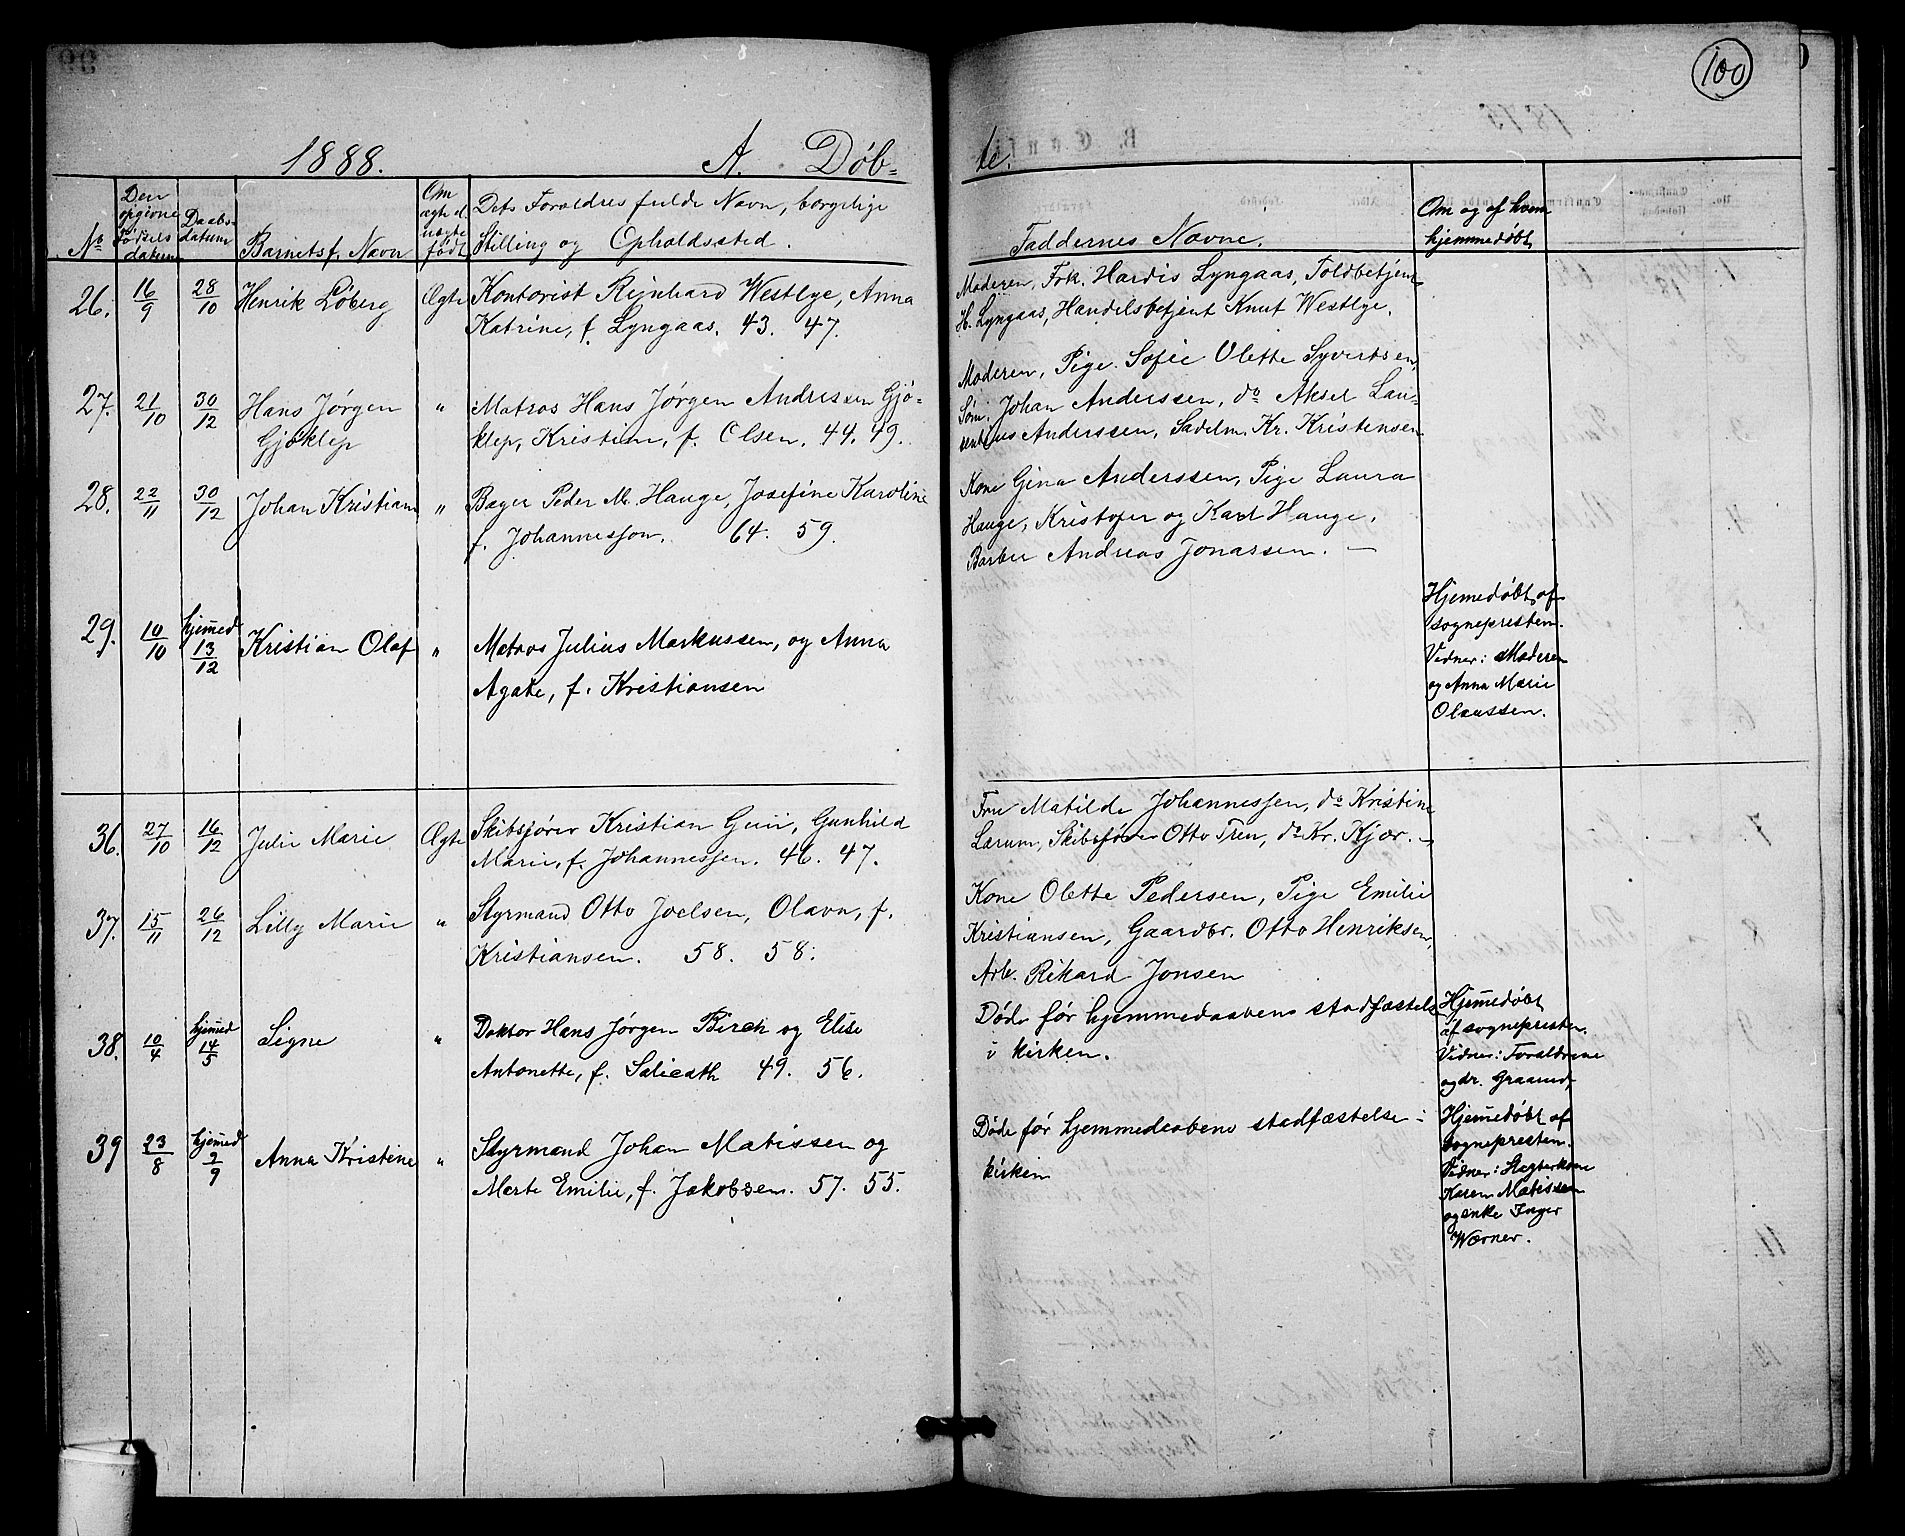 100
1888. A. Døb=
te.
No
Den opgivne Fødselsdatum
Daabsdatum
Barnets f. Navn
Om ægte el. uægte født
Dets Forældres fulde Navn, borgelige
Stilling og Opholdssted.
Faddernes Navne.
Om og af hvem
hjemmedøbt
26. 16/9 28/10 Henrik Löberg Ægte Kontorist Reinhard Westlye, Anna
Katrine, f. Lyngaas. 43. 47.
Moderen, Frk. Hardis Lyngaas, Toldbetjent
H. Lyngaas, Handelsbetjent Knut Westlye.
27. 21/10 30/12 Hans Jørgen
Gjöklep
" Matros Hans Jørgen Andressen Gjö-
klep, Kristian, f. Olsen. 44. 49.
Moderen, Pige Sofie Olette Syvertsen,
Søm. Johan Anderssen, do Aksel Lau-
sentius Anderssen, Sadelm. Kr. Kristensen
28. 22/11 30/12 Johan Kristian " Bager Peder M. Hauge, Josefine Karoline
f. Johannesson. 64. 59.
Kone Gina Anderssen, Pige Laura
Hauge, Kristofer og Karl Hauge,
Barber Andreas Jonassen. —
29. 10/10 hjemed 13/12 Kristian Olaf " Matros Julius Markussen, og Anna
Agate, f. Kristiansen
Hjemedøbt af
sognepresten.
Vidner: Moderen
og Anna Marie
Olaussen.
36. 27/10 16/12 Julie Marie Ægte Skibsfører Kristian , Gunhild
Marie, f. Johannessen. 46. 47.
Fru Matilde Johannessen, do Kristine
Larum, Skibsfører Otto , do Kr. Kjær. —
37. 15/11 26/12 Lilly Marie " Styrmand Otto Joelsen, Olava, f.
Kristiansen. 58. 58.
Kone Olette Pedersen, Pige Emilie
Kristiansen, Gaardbr. Otto Henriksen,
Arb. Rikard Jonsen
38. 10/4 hjemed 14/5 Signe " Doktor Hans Jørgen Birch og Elise
Antonette, f. Salicath 49. 56.
Døde før hjemmedaabens stadfæstelse
i kirken.
Hjemedøbt
af sognepresten.
Vidner: Foraldrene
og dr. Graarud,
39 23/8 hjemed 2/9 Anna Kristine " Styrmand Johan Matissen og
Marte Emilie, f. Jakobsen. 57. 55.
Døde før hjemmedaabens stadfæstelse i
kirken
Hjemedøbt af
sognepresten.
Vidner: Slagterkone
Karen Matissen
og enke Inger
Wærner.